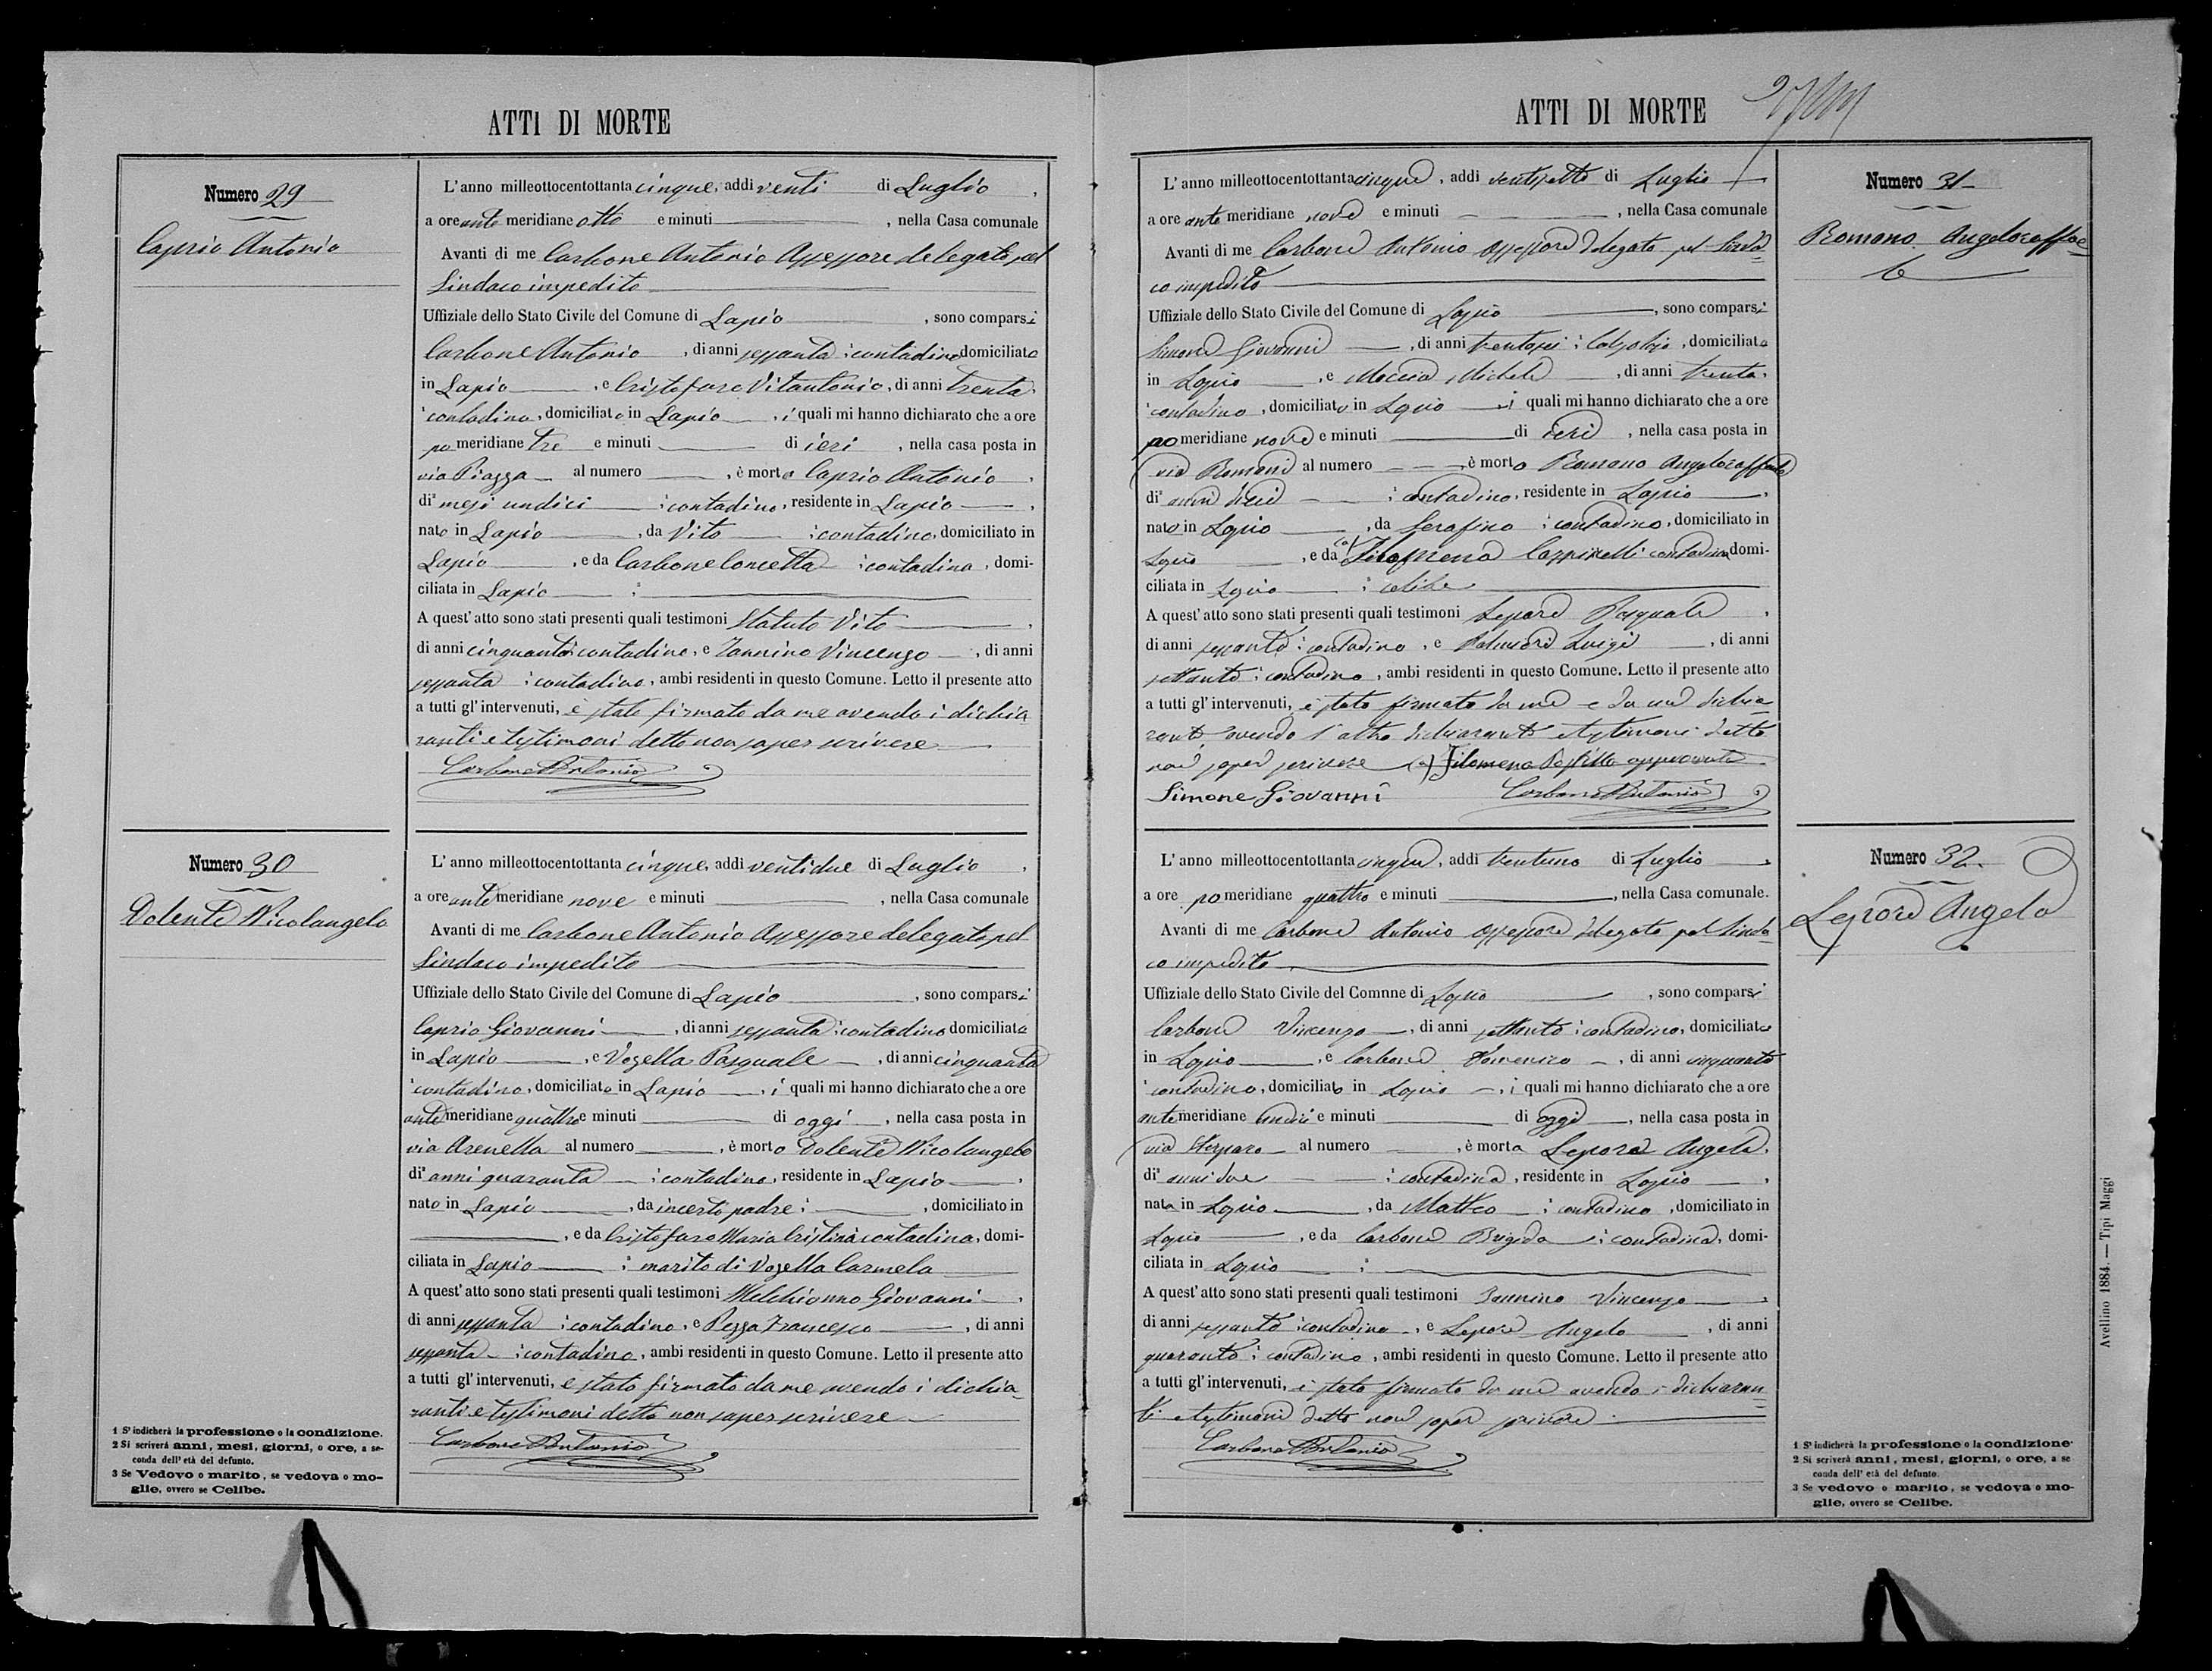 ATTI DI MORTE
Numero 29
Caprio Antonio
L'anno milleottocentottanta cinque, addì venti di Luglio,
a ore ante meridiane otto e minuti, nella Casa comunale
Avanti di me Carbone Antonio Assessore delegato pel
Sindaco impedito
Uffiziale dello Stato Civile del Comune di Lapio, sono comparsi
Carbone Antonio, di anni sessanta; contadino domiciliato
in Lapio, e Cristofaro Vitantonio, di anni trenta;
contadino, domiciliato in Lapio, i quali mi hanno dichiarato che a ore
po meridiane tre e minuti di ieri, nella casa posta in
via Piazza al numero, è morto Caprio Antonio,
di² mesi undici; contadino, residente in Lapio,
nato in Lapio, da Vito; contadino, domiciliato in
Lapio, e da Carbone Concetta; contadina, domi-
ciliata in Lapio;
A quest'atto sono stati presenti quali testimoni Statuto Vito,
di anni cinquanta; contadino, e Iannino Vincenzo, di anni
sessanta; contadino, ambi residenti in questo Comune. Letto il presente atto
a tutti gl'intervenuti, è stato firmato da me avendo i dichia
ranti e testimoni detto non saper scrivere
Carbone Antonio
Numero 30
Dolente Nicolangelo
L'anno milleottocentottanta cinque, addì ventidue di Luglio,
a ore ante meridiane nove e minuti, nella Casa comunale
Avanti di me Carbone Antonio Assessore delegato pel
Sindaco impedito
Uffiziale dello Stato Civile del Comune di Lapio, sono comparsi
Caprio Giovanni, di anni sessanta; contadino domiciliato
in Lapio, e Vozella Pasquale, di anni cinquanta
contadino, domiciliato in Lapio, i quali mi hanno dichiarato che a ore
ante meridiane quattro e minuti di oggi, nella casa posta in
via Arenella al numero, è morto Dolente Nicolangelo
di² anni quaranta; contadino, residente in Lapio,
nato in Lapio, da incerto padre;, domiciliato in
, e da Cristofaro Maria Cristina contadina, domi-
ciliata in Lapio; marito di Vozella Carmela
A quest'atto sono stati presenti quali testimoni Melchionno Giovanni,
di anni sessanta; contadino, e Pezza Francesco, di anni
sessanta; contadino, ambi residenti in questo Comune. Letto il presente atto
a tutti gl'intervenuti, è stato firmato da me avendo i dichia-
ranti e testimoni detto non saper scrivere
Carbone Antonio
1 S'indicherà la professione o la condizione.
2 Si scriverà anni, mesi, giorni, o ore, a se-
conda dell'età del defunto.
3 Se Vedovo o marito, se vedova o mo-
glie, ovvero se Celibe.
ATTI DI MORTE
Numero 31
Romano Angeloraffae
le
L'anno milleottocentottanta cinque, addì ventisette di Luglio
a ore ante meridiane nove e minuti, nella Casa comunale
Avanti di me Carbone Antonio Assessore delegato pel Sinda-
co impedito
Uffiziale dello Stato Civile del Comune di Lapio, sono comparsi
Simone Giovanni, di anni trentasei; Calzolaio, domiciliato
in Lapio, e Moccia Michele, di anni trenta;
contadino, domiciliato in Lapio, i quali mi hanno dichiarato che a ore
po meridiane nove e minuti di ieri, nella casa posta in
via Romani al numero, è morto Romano Angeloraffaele
di² anni dieci; contadino, residente in Lapio,
nato in Lapio, da Serafino; contadino, domiciliato in
Lapio, e da (a) Filomena contadina domi-
ciliata in Lapio; celibe
A quest'atto sono stati presenti quali testimoni Lepore Pasquale,
di anni sessanta; contadino, e Luigi, di anni
settanta; contadino, ambi residenti in questo Comune. Letto il presente atto
a tutti gl'intervenuti, è stato firmato da me e da un dichia
rante avendo l'altro dichiarante e testimoni detto
non saper scrivere (a) Filomena approvata
Simone Giovanni Carbone Antonio
Numero 32
Lepore Angela
L'anno milleottocentottanta cinque, addì trentuno di Luglio,
a ore po meridiane quattro e minuti, nella Casa comunale.
Avanti di me Carbone Antonio Assessore delegato pel Sinda-
co impedito
Uffiziale dello Stato Civile del Comnne di Lapio, sono comparsi
Carbone Vincenzo, di anni settanta; contadino, domiciliato
in Lapio, e Carbone Domenico, di anni cinquanta
contadino, domiciliato in Lapio, i quali mi hanno dichiarato che a ore
ante meridiane undici e minuti di oggi, nella casa posta in
via Sterparo al numero, è morta Lepore Angela,
di² anni due; contadina, residente in Lapio,
nata in Lapio, da Matteo; contadino, domiciliato in
Lapio, e da Carbone Brigida; contadina, domi-
ciliata in Lapio;
A quest'atto sono stati presenti quali testimoni Iannino Vincenzo,
di anni sessanta; contadino, e Lepore Angelo, di anni
quaranta; contadino, ambi residenti in questo Comune. Letto il presente atto
a tutti gl'intervenuti, è stato firmato da me avendo i dichiaran-
ti e testimoni detto non saper scrivere.
Carbone Antonio
1 S'indicherà la professione o la condizione.
2 Si scriverà anni, mesi, giorni, o ore, a se
conda dell'età del defunto.
3 Se vedovo o marito, se vedova o mo-
glie, ovvero se Celibe.
Avellino 1884.—Tipi Maggi